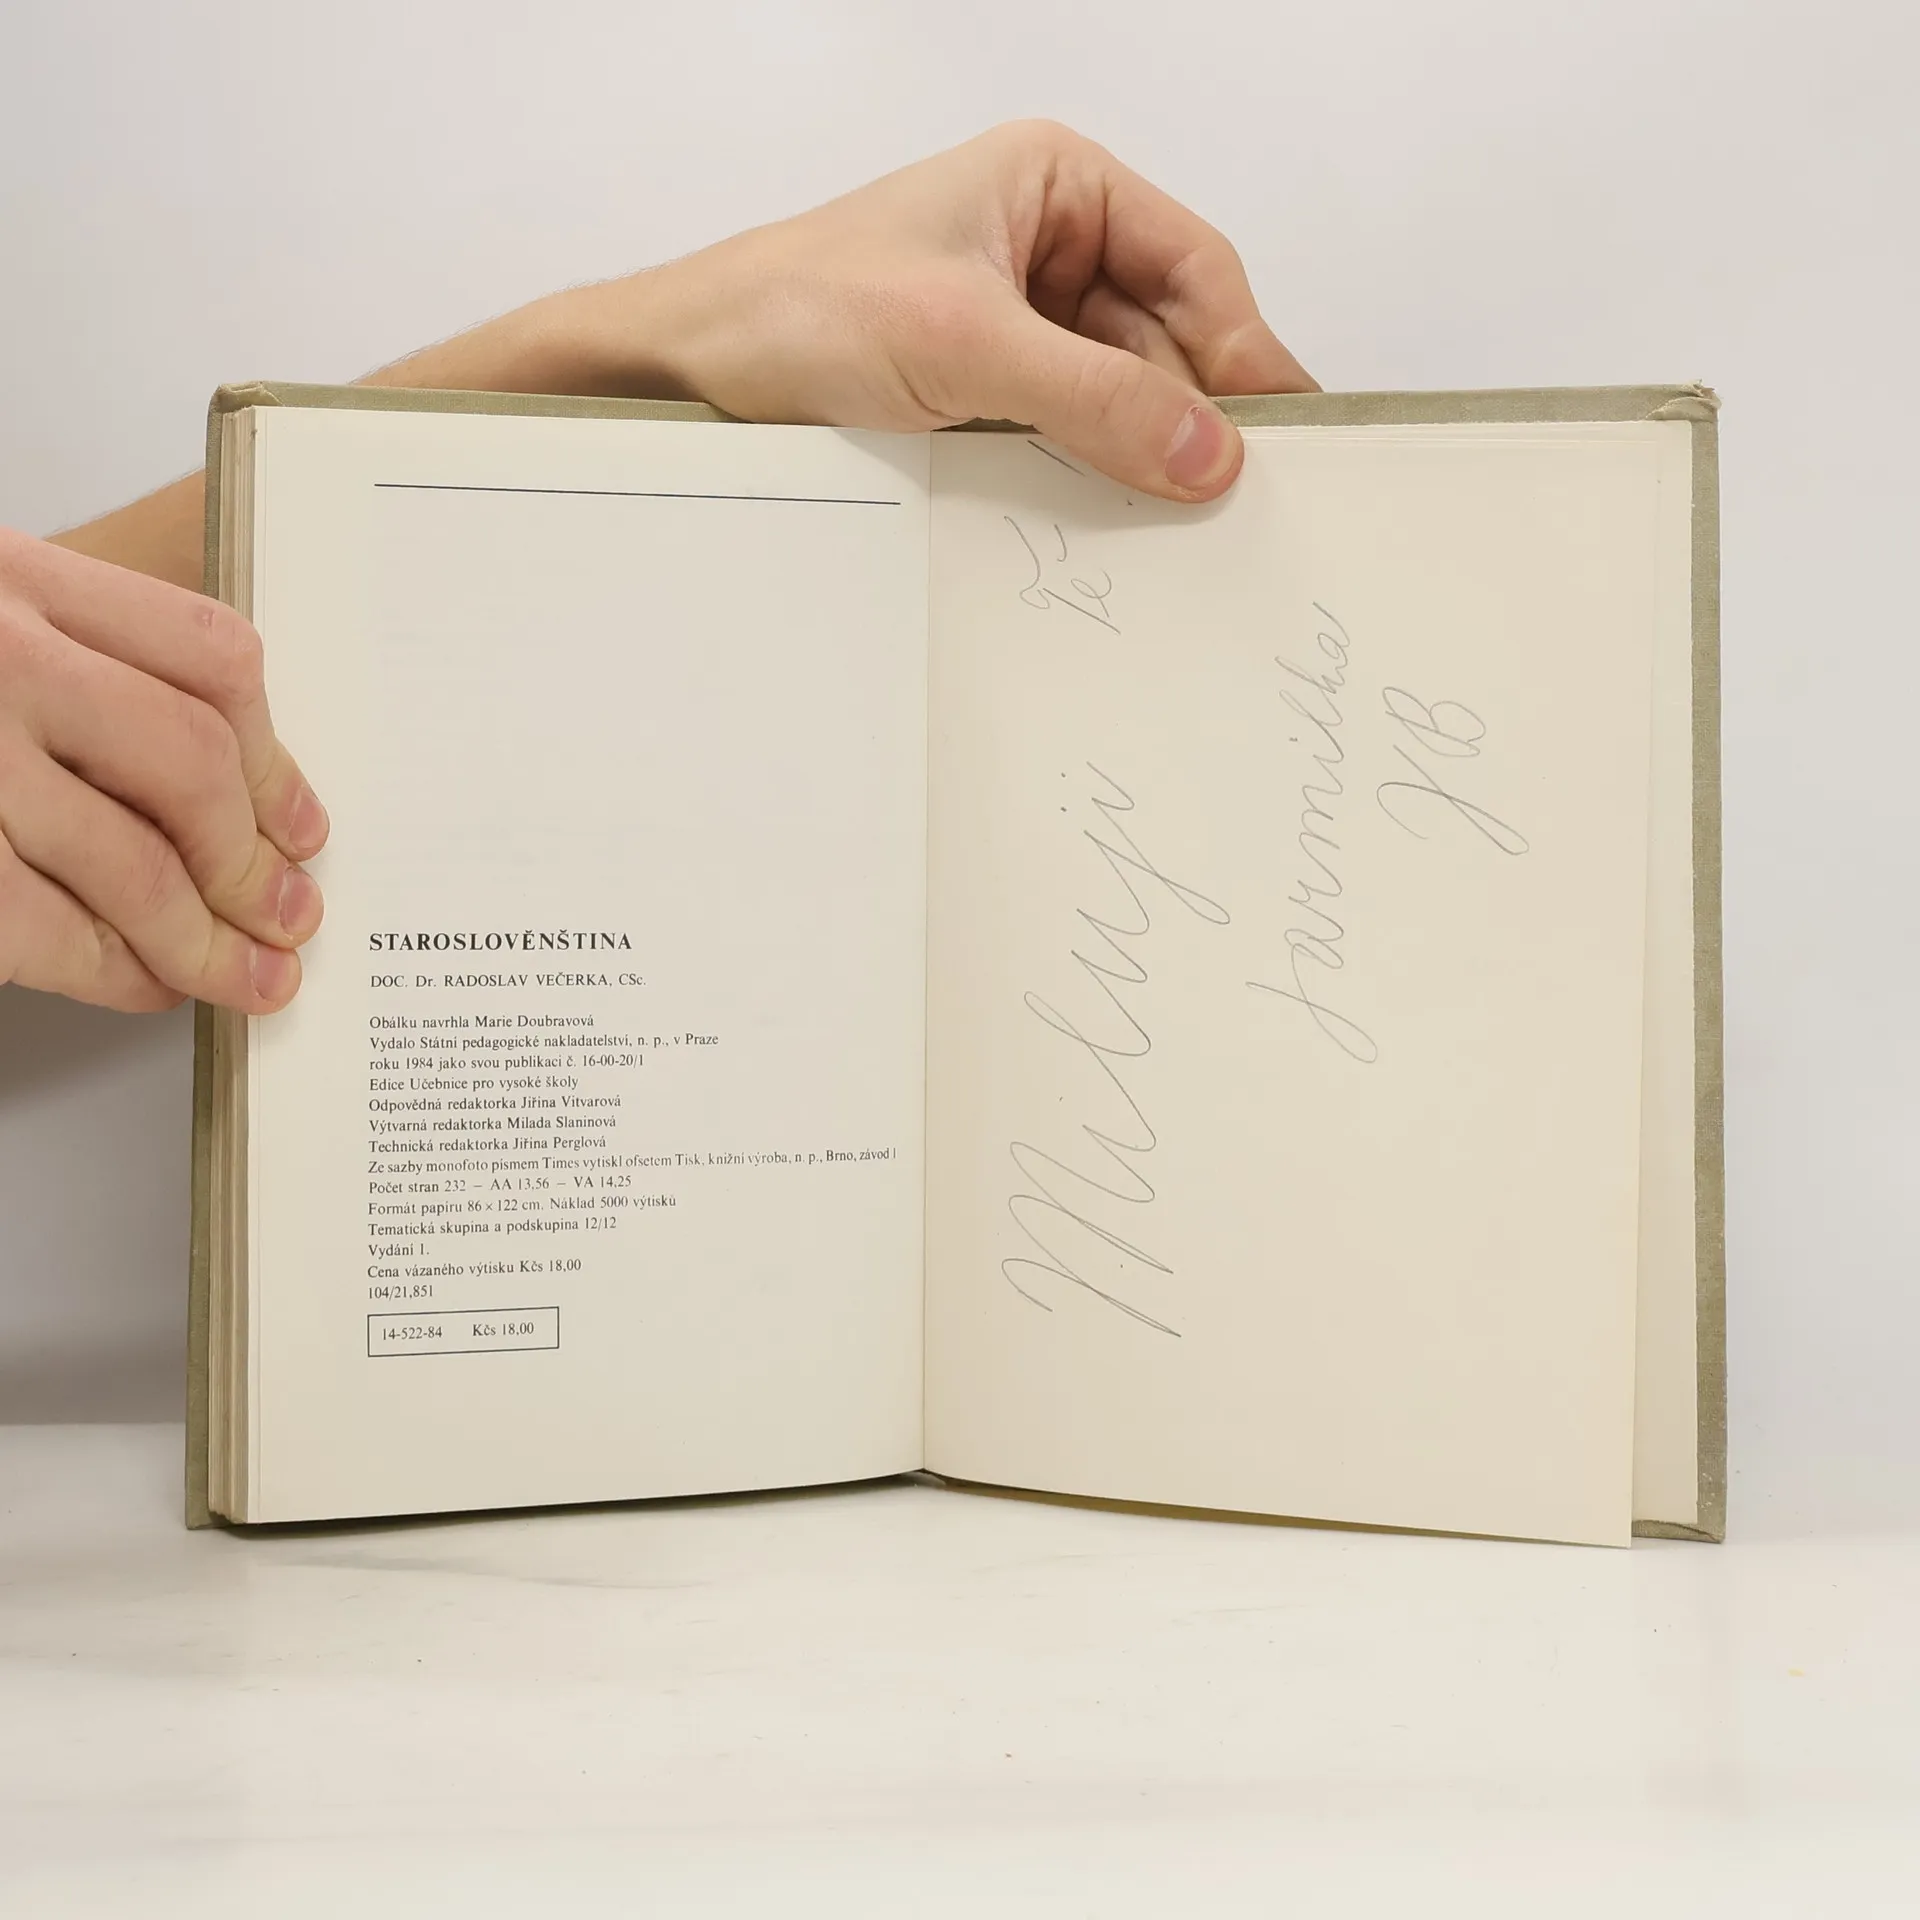 STAROSLOVĚNŠTINA
DOC. Dr. RADOSLAV VEČERKA, CSc.
Obálku navrhla Marie Doubravová
Vydalo Státní pedagogické nakladatelství, n. p., v Praze
roku 1984 jako svou publikaci č. 16-00-20/1
Edice Učebnice pro vysoké školy
Odpovědná redaktorka Jiřina Vitvarová
Výtvarná redaktorka Milada Slaninová
Technická redaktorka Jiřina Perglová
Ze sazby monofoto písmem Times vytiskl ofsetem Tisk, knižní výroba, n. p., Brno, závod 1
Počet stran 232 – AA 13,56 – VA 14,25
Formát papíru 86 × 122 cm. Náklad 5000 výtisků
Tematická skupina a podskupina 12/12
Vydání 1.
Cena vázaného výtisku Kčs 18,00
104/21,851
14-522-84 Kčs 18,00
Miluji Tě
Jarmilka
JB